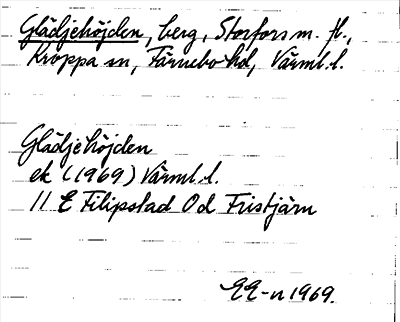 Glädjehöjden, berg, Storfors m. fl.,
Kroppa sn, Färnebo hd, Värml. l.
Glädjehöjden
ek (1969) Värml. l.
11 E Filipstad 0d Fristjärn
EE-n 1969.